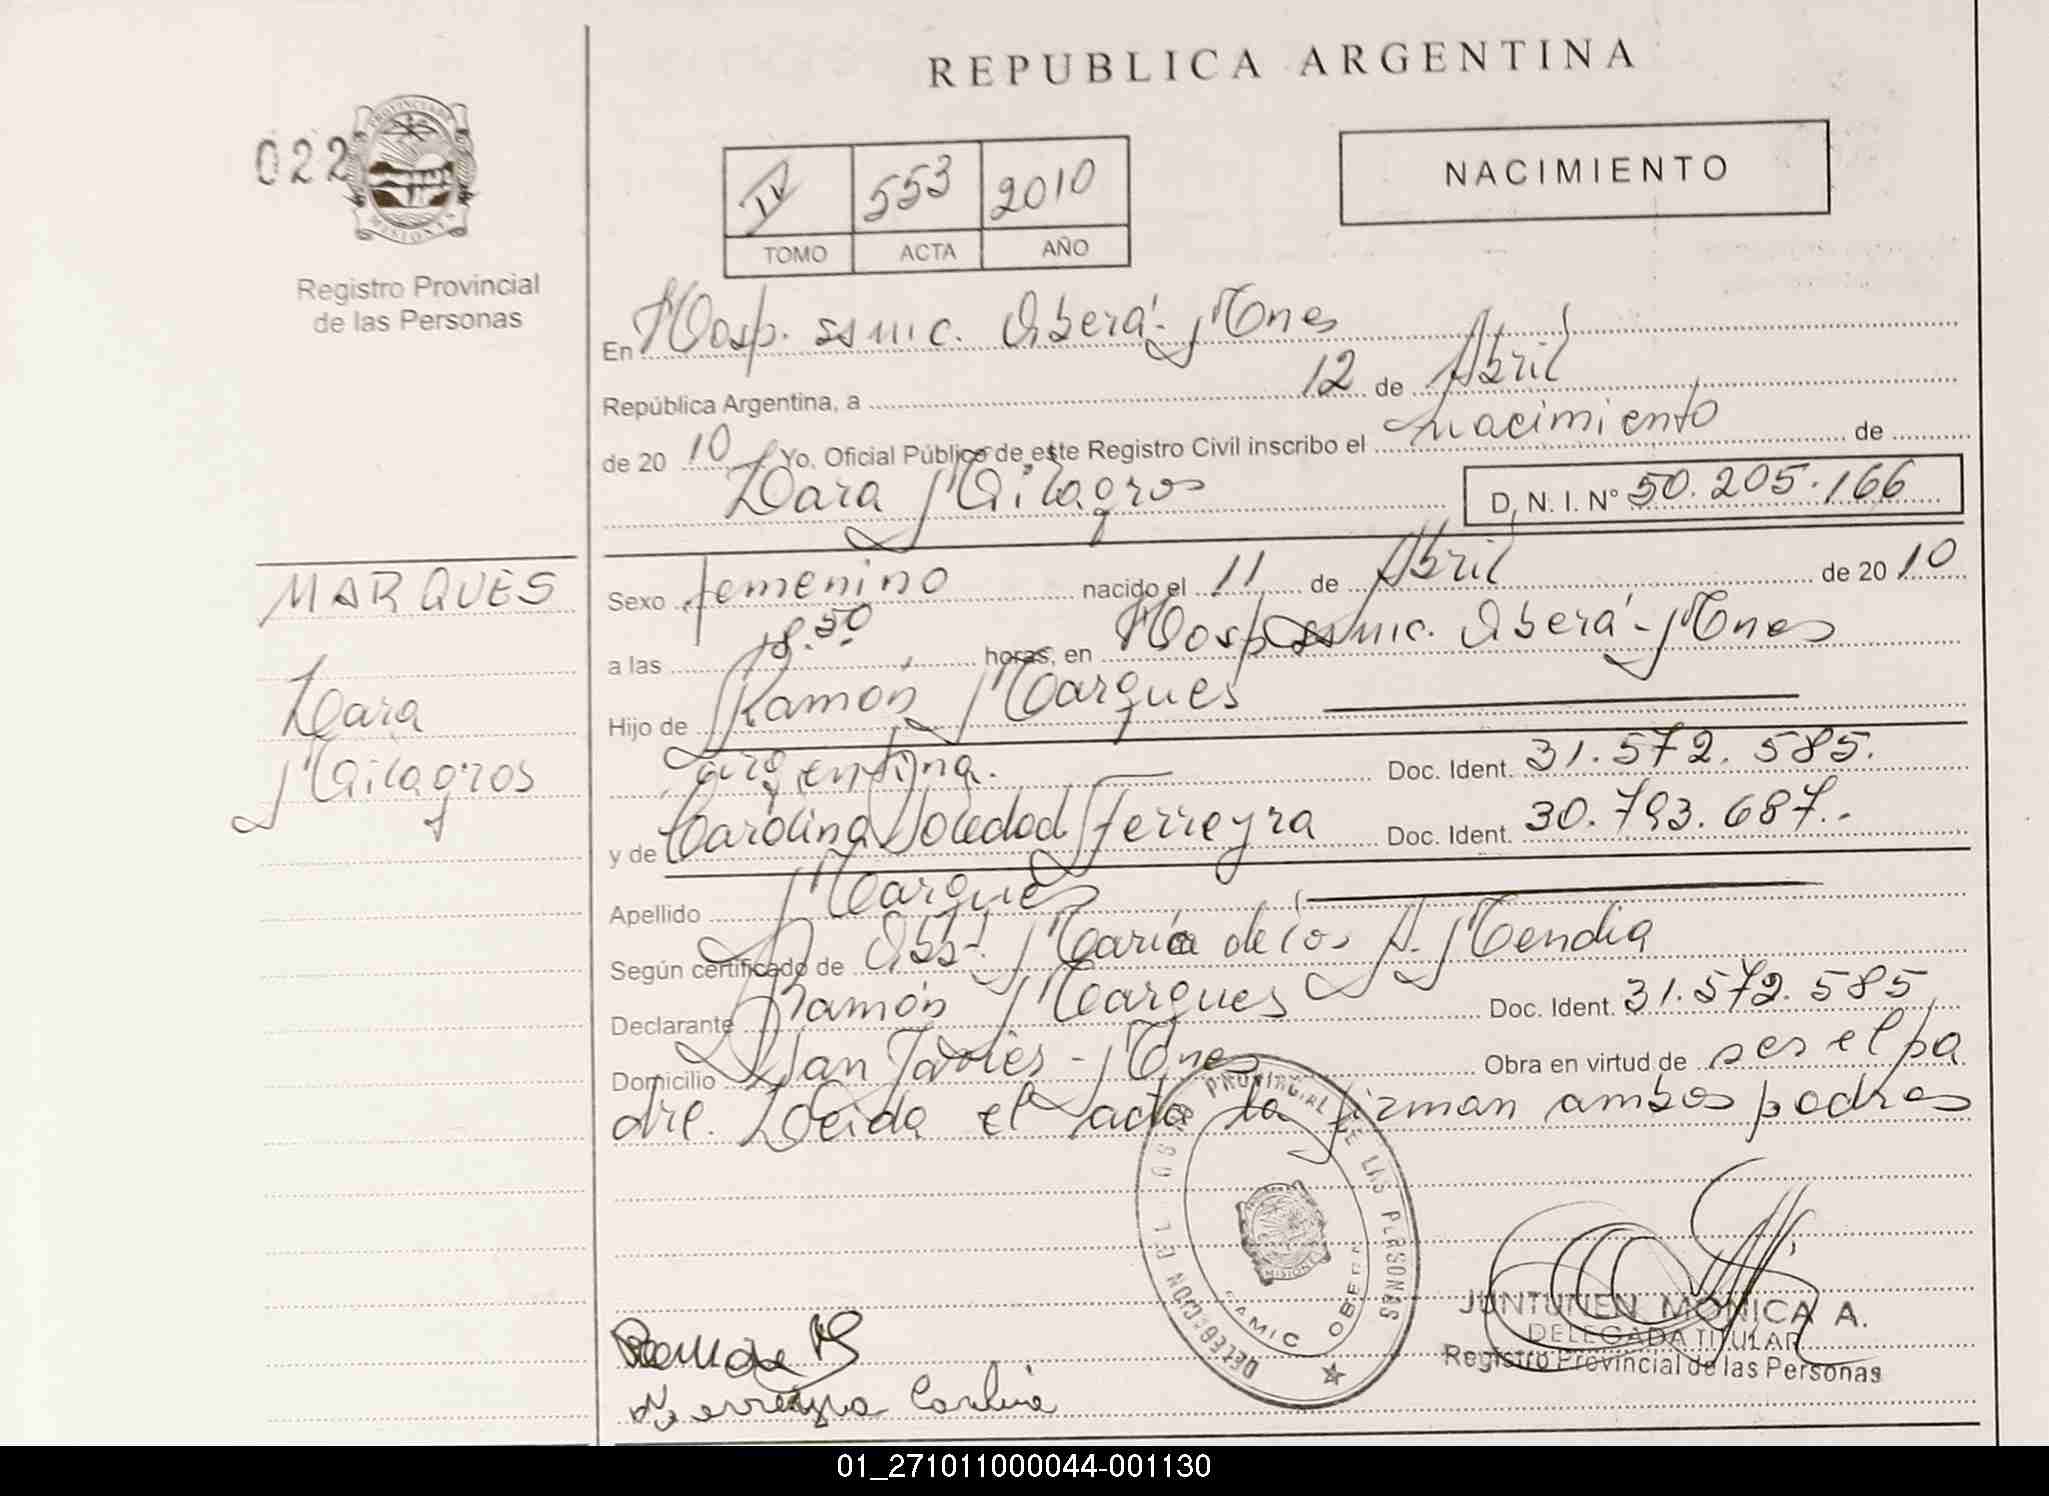 REPUBLICA ARGENTINA
022
PROVINCIA DE MISIONES
Registro Provincial
de las Personas
IV 553 2010
TOMO ACTA AÑO
NACIMIENTO
En Hosp. ssmic. Oberá - Mnes
República Argentina, a 12 de Abril
de 20 10 Yo, Oficial Público de este Registro Civil inscribo el nacimiento de
Zara Milagros D. N. I. Nº 50.205.166
MARQUES
Zara
Milagros
Sexo femenino nacido el 11 de Abril de 20 10
a las 18.50 horas, en Hosp ssmic. Oberá - Mnes
Hijo de Ramón Marques
argentina. Doc. Ident. 31.572.585.
y de Carolina Soledad Ferreyra Doc. Ident. 30.793.687.-
Apellido Marques
Según certificado de Obst. María de los A. Mendia
Declarante Ramón Marques Doc. Ident. 31.572.585
Domicilio San Javier - Mnes Obra en virtud de ser el pa
dre. Leida el acta la firman ambos padres
DELEGACION DEL REGISTRO PROVINCIAL DE LAS PERSONAS
SAMIC OBERA
MISIONES
JUNTUNEN MONICA A.
DELEGADA TITULAR
Registro Provincial de las Personas
Ferreyra Carolina
01_271011000044-001130